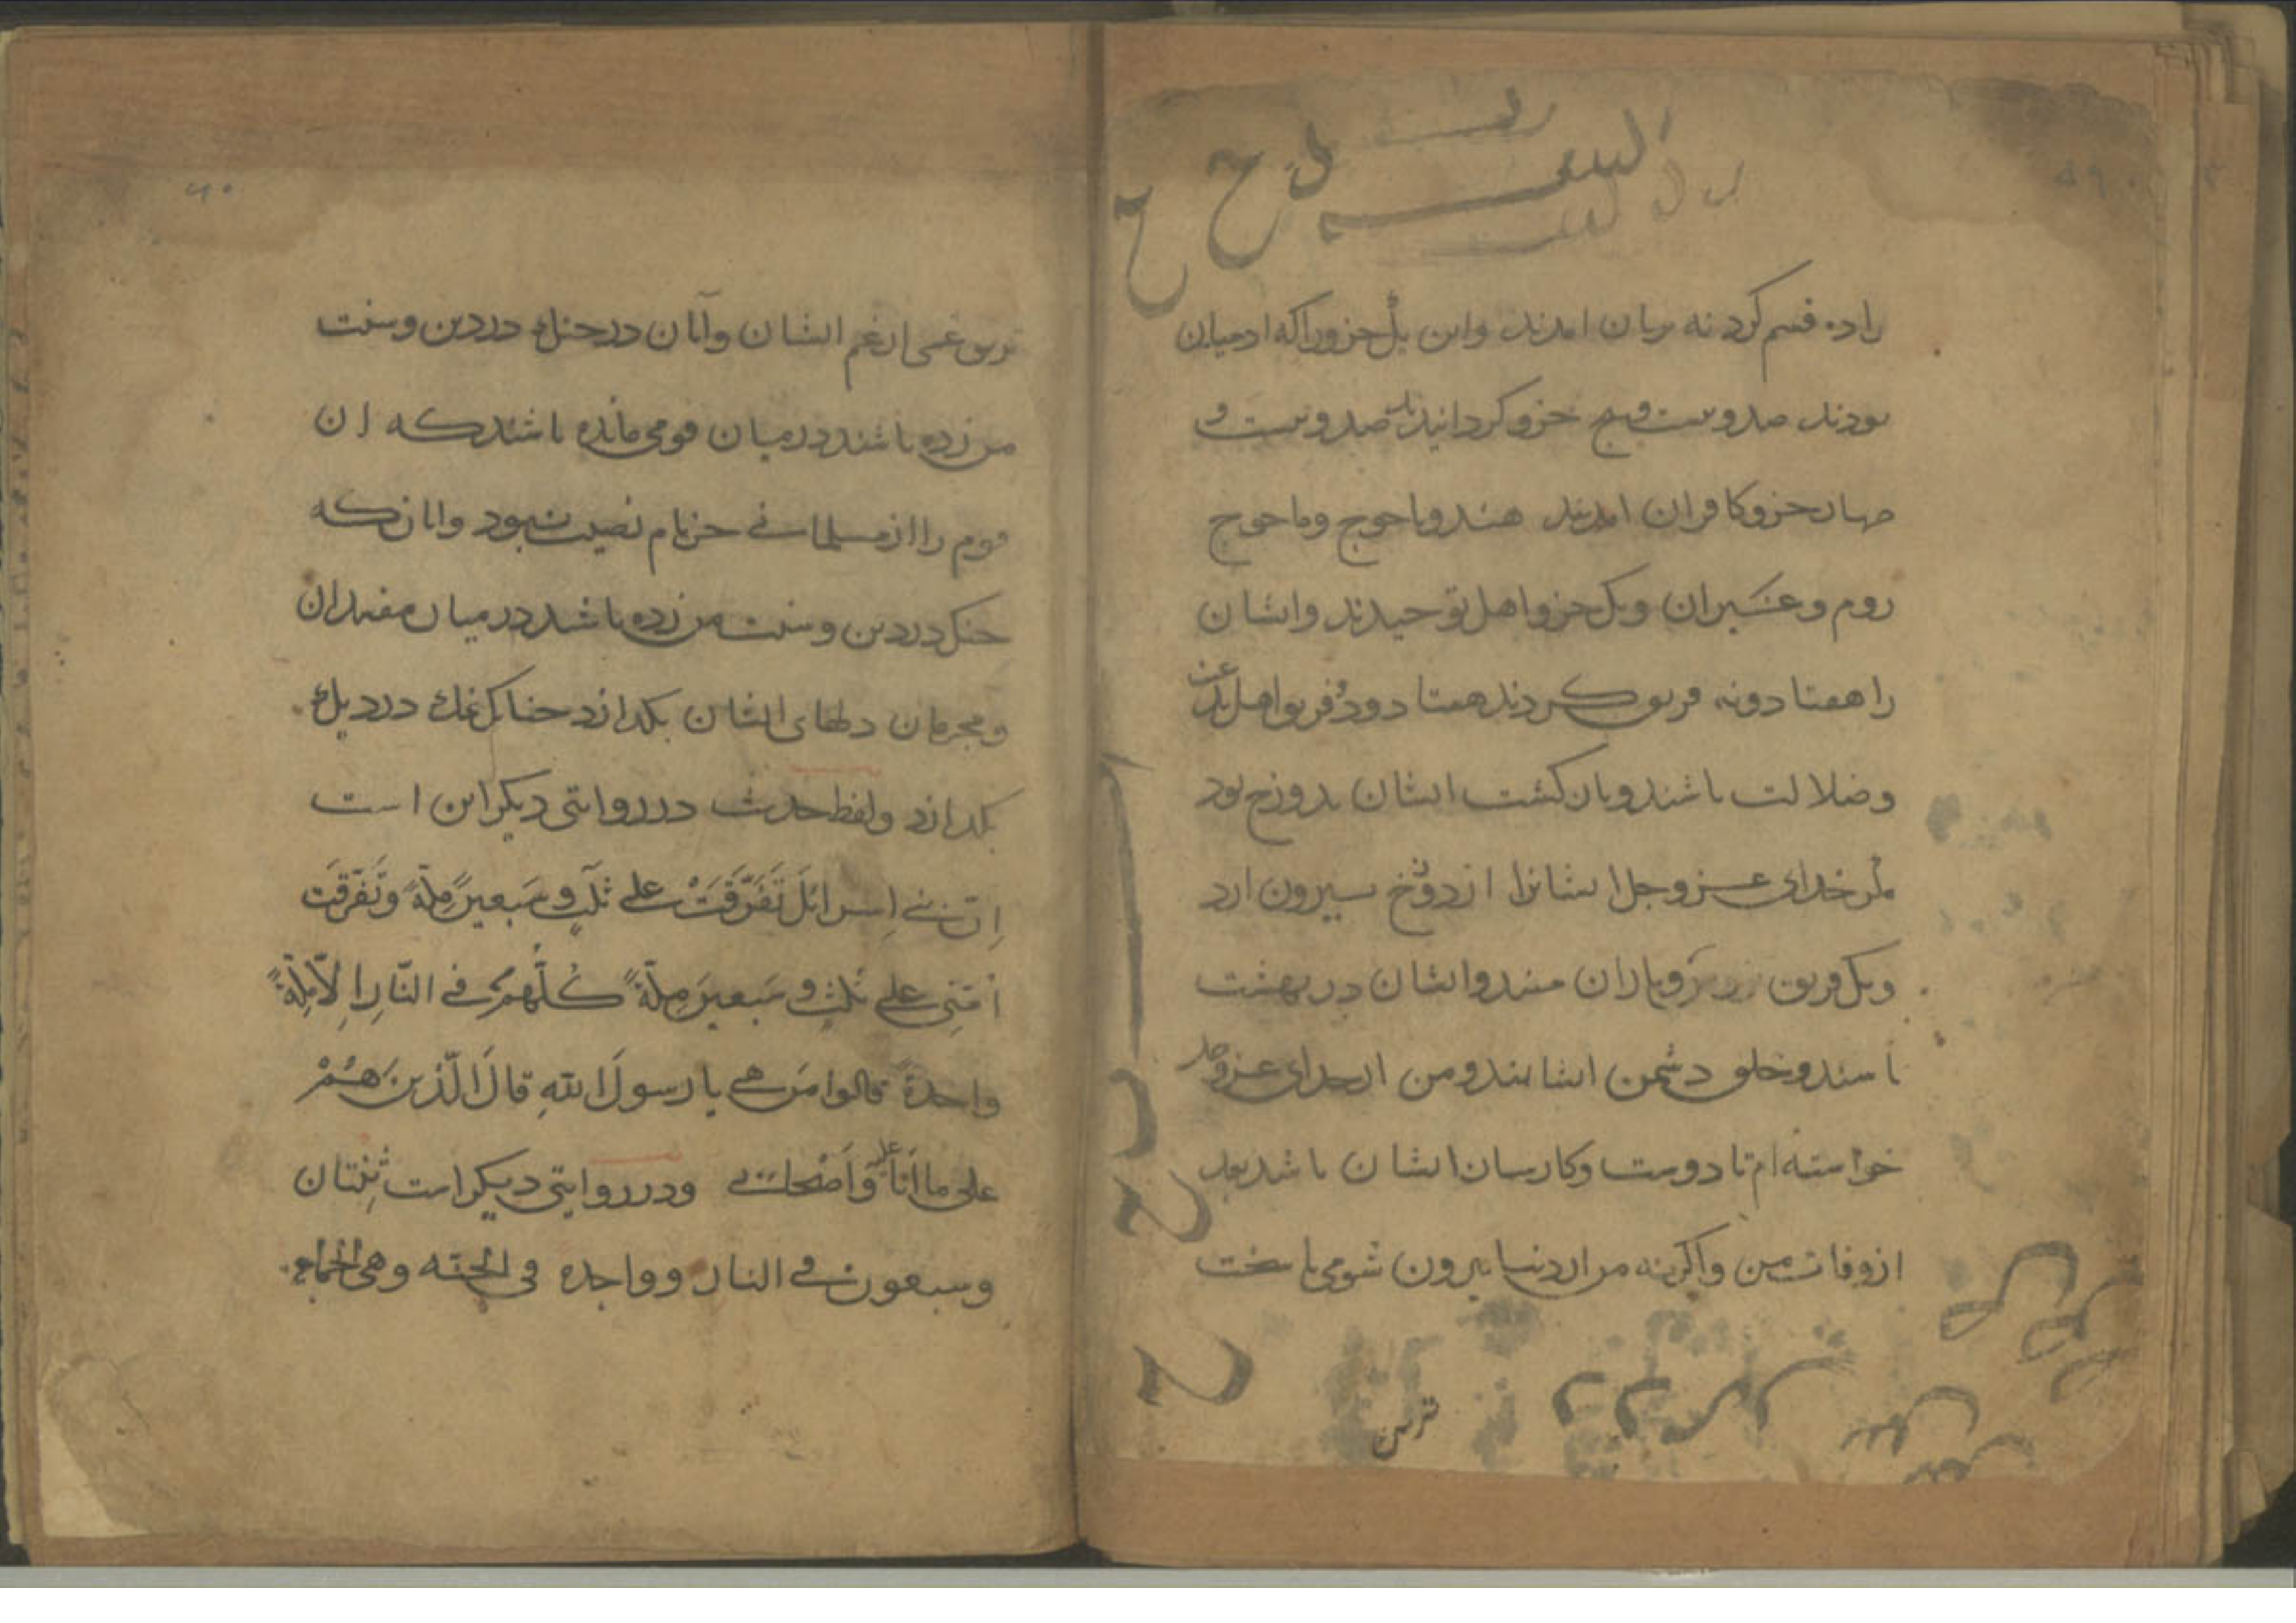 را ده قسم کرد نه پریان امدند و این یک جزو را که ادمیان
بودند صد و بیست و پنج جزو کردانید تا صد و بیست و
چهار جزو کافران امدند هند و یاجوج و ماجوج
روم و غیران و یک جزو اهل توحیدند و ایشان را
را هفتاد و نه فریق کردند هفتاد و دو فریق اهل بدعت
و ضلالت باشند و بازکشت ایشان بدوزخ بود
مکر خدای عزوجل ایشانرا از دوزخ بیرون ارد
و یک فریق یاران منند و ایشان در بهشت
باشند و خلق دشمن ایشانند و من از خدای عزوجل
خواسته ام تا دوست و کارساز ایشان باشد بعد
از وفات من و اکر نه مرا از دنیا بیرون شومی با سخت
ترین
۶۰
ترین غمی از غم ایشان و آنان در جنک در دین و سنت
من زده باشند در میان قومی مانده باشند که ان
قوم را از مسلمانی جز نام نصیب نبود و انان که
جنک در دین و سنت من زده باشد در میان مفسدان
و مجرمان دلهای ایشان بکدازد چنانک نمک در دیک
بکدازد و لفظ حدیث در روایتی دیکر این است
اِنّ بنی اِسرائلَ تَفَرَّقَتْ علی ثلثٍ و سَبعینَ مِلّةً وتَفَرّقَت
اُمّتِی علی ثلثٍ و سَبعینَ مِلّةً کُلُّهُمْ فی النّارِ اِلّا مِلّةً
واحدةً قالوا مَن هی یا رسولَ اللهِ قالَ الّذینَ هُمْ
علی ما اَنَا علیه وَاَصْحَابی ودر روایتی دیکر است ثِنْتان
وسبعون فی النار وواحدة فی الجنه وهی الجماعه